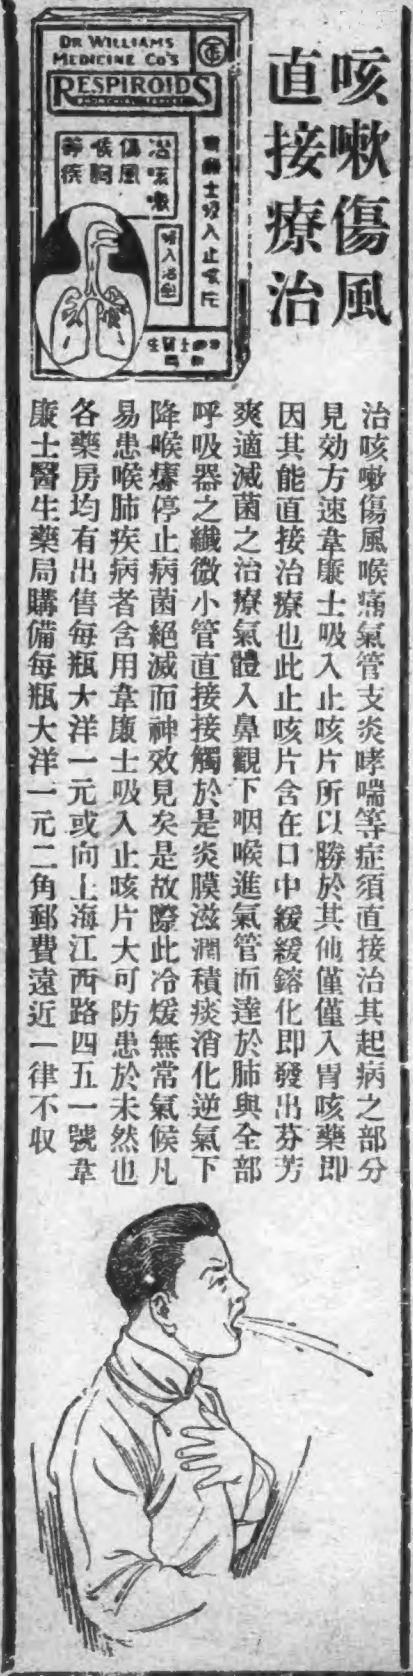 咳嗽傷風
直接療治
DR WILLIAMS
MEDICINE CO'S
RESPIROIDS
治咳嗽
傷風
喉胸
等疾
吸入止咳片
治咳嗽傷風喉痛氣管支炎哮喘等症須直接治其起病之部分
見効方速韋廉士吸入止咳片所以勝於其他僅僅入胃咳藥即
因其能直接治療也此止咳片含在口中緩緩鎔化即發出芬芳
爽適滅菌之治療氣體入鼻觀下咽喉進氣管而達於肺與全部
呼吸器之纖微小管直接接觸於是炎膜滋潤積痰消化逆氣下
降喉癢停止病菌絕滅而神效見矣是故際此冷煖無常氣候凡
易患喉肺疾病者含用韋廉士吸入止咳片大可防患於未然也
各藥房均有出售每瓶大洋一元或向上海江西路四五一號韋
廉士醫生藥局購備每瓶大洋一元二角郵費遠近一律不収